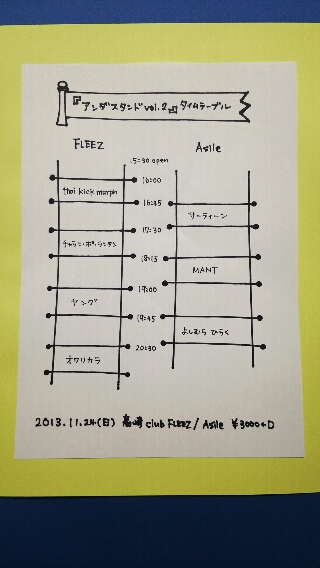 『アンダスタンドvol.2』タイムテーブル
FLEEZ
Asile
15:30 open
16:00
thai kick murph
16:45
サーティーン
17:30
チャラン・ポ・ランタン
18:15
MANT
19:00
ヤング
19:45
よしむら ひらく
20:30
オワリカラ
2013.11.24(日) 高崎 club FLEEZ / Asile ¥3000+D